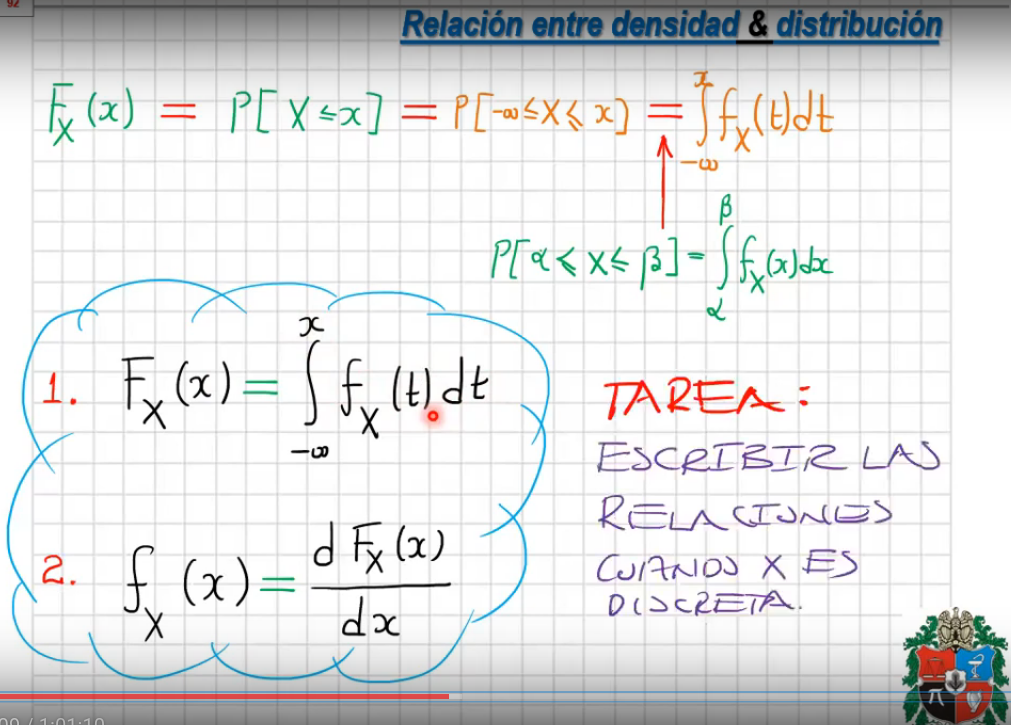 92
Relación entre densidad & distribución
F_X(x) = P[X ≤ x] = P[-∞ ≤ X ≤ x] = ∫_{-∞}^{x} f_X(t)dt
P[α ≤ X ≤ β] = ∫_{α}^{β} f_X(x)dx
1. F_X(x) = ∫_{-∞}^{x} f_X(t)dt
2. f_X(x) = dF_X(x)/dx
TAREA:
ESCRIBIR LAS
RELACIONES
CUANDO X ES
DISCRETA.
/ 1:01:10